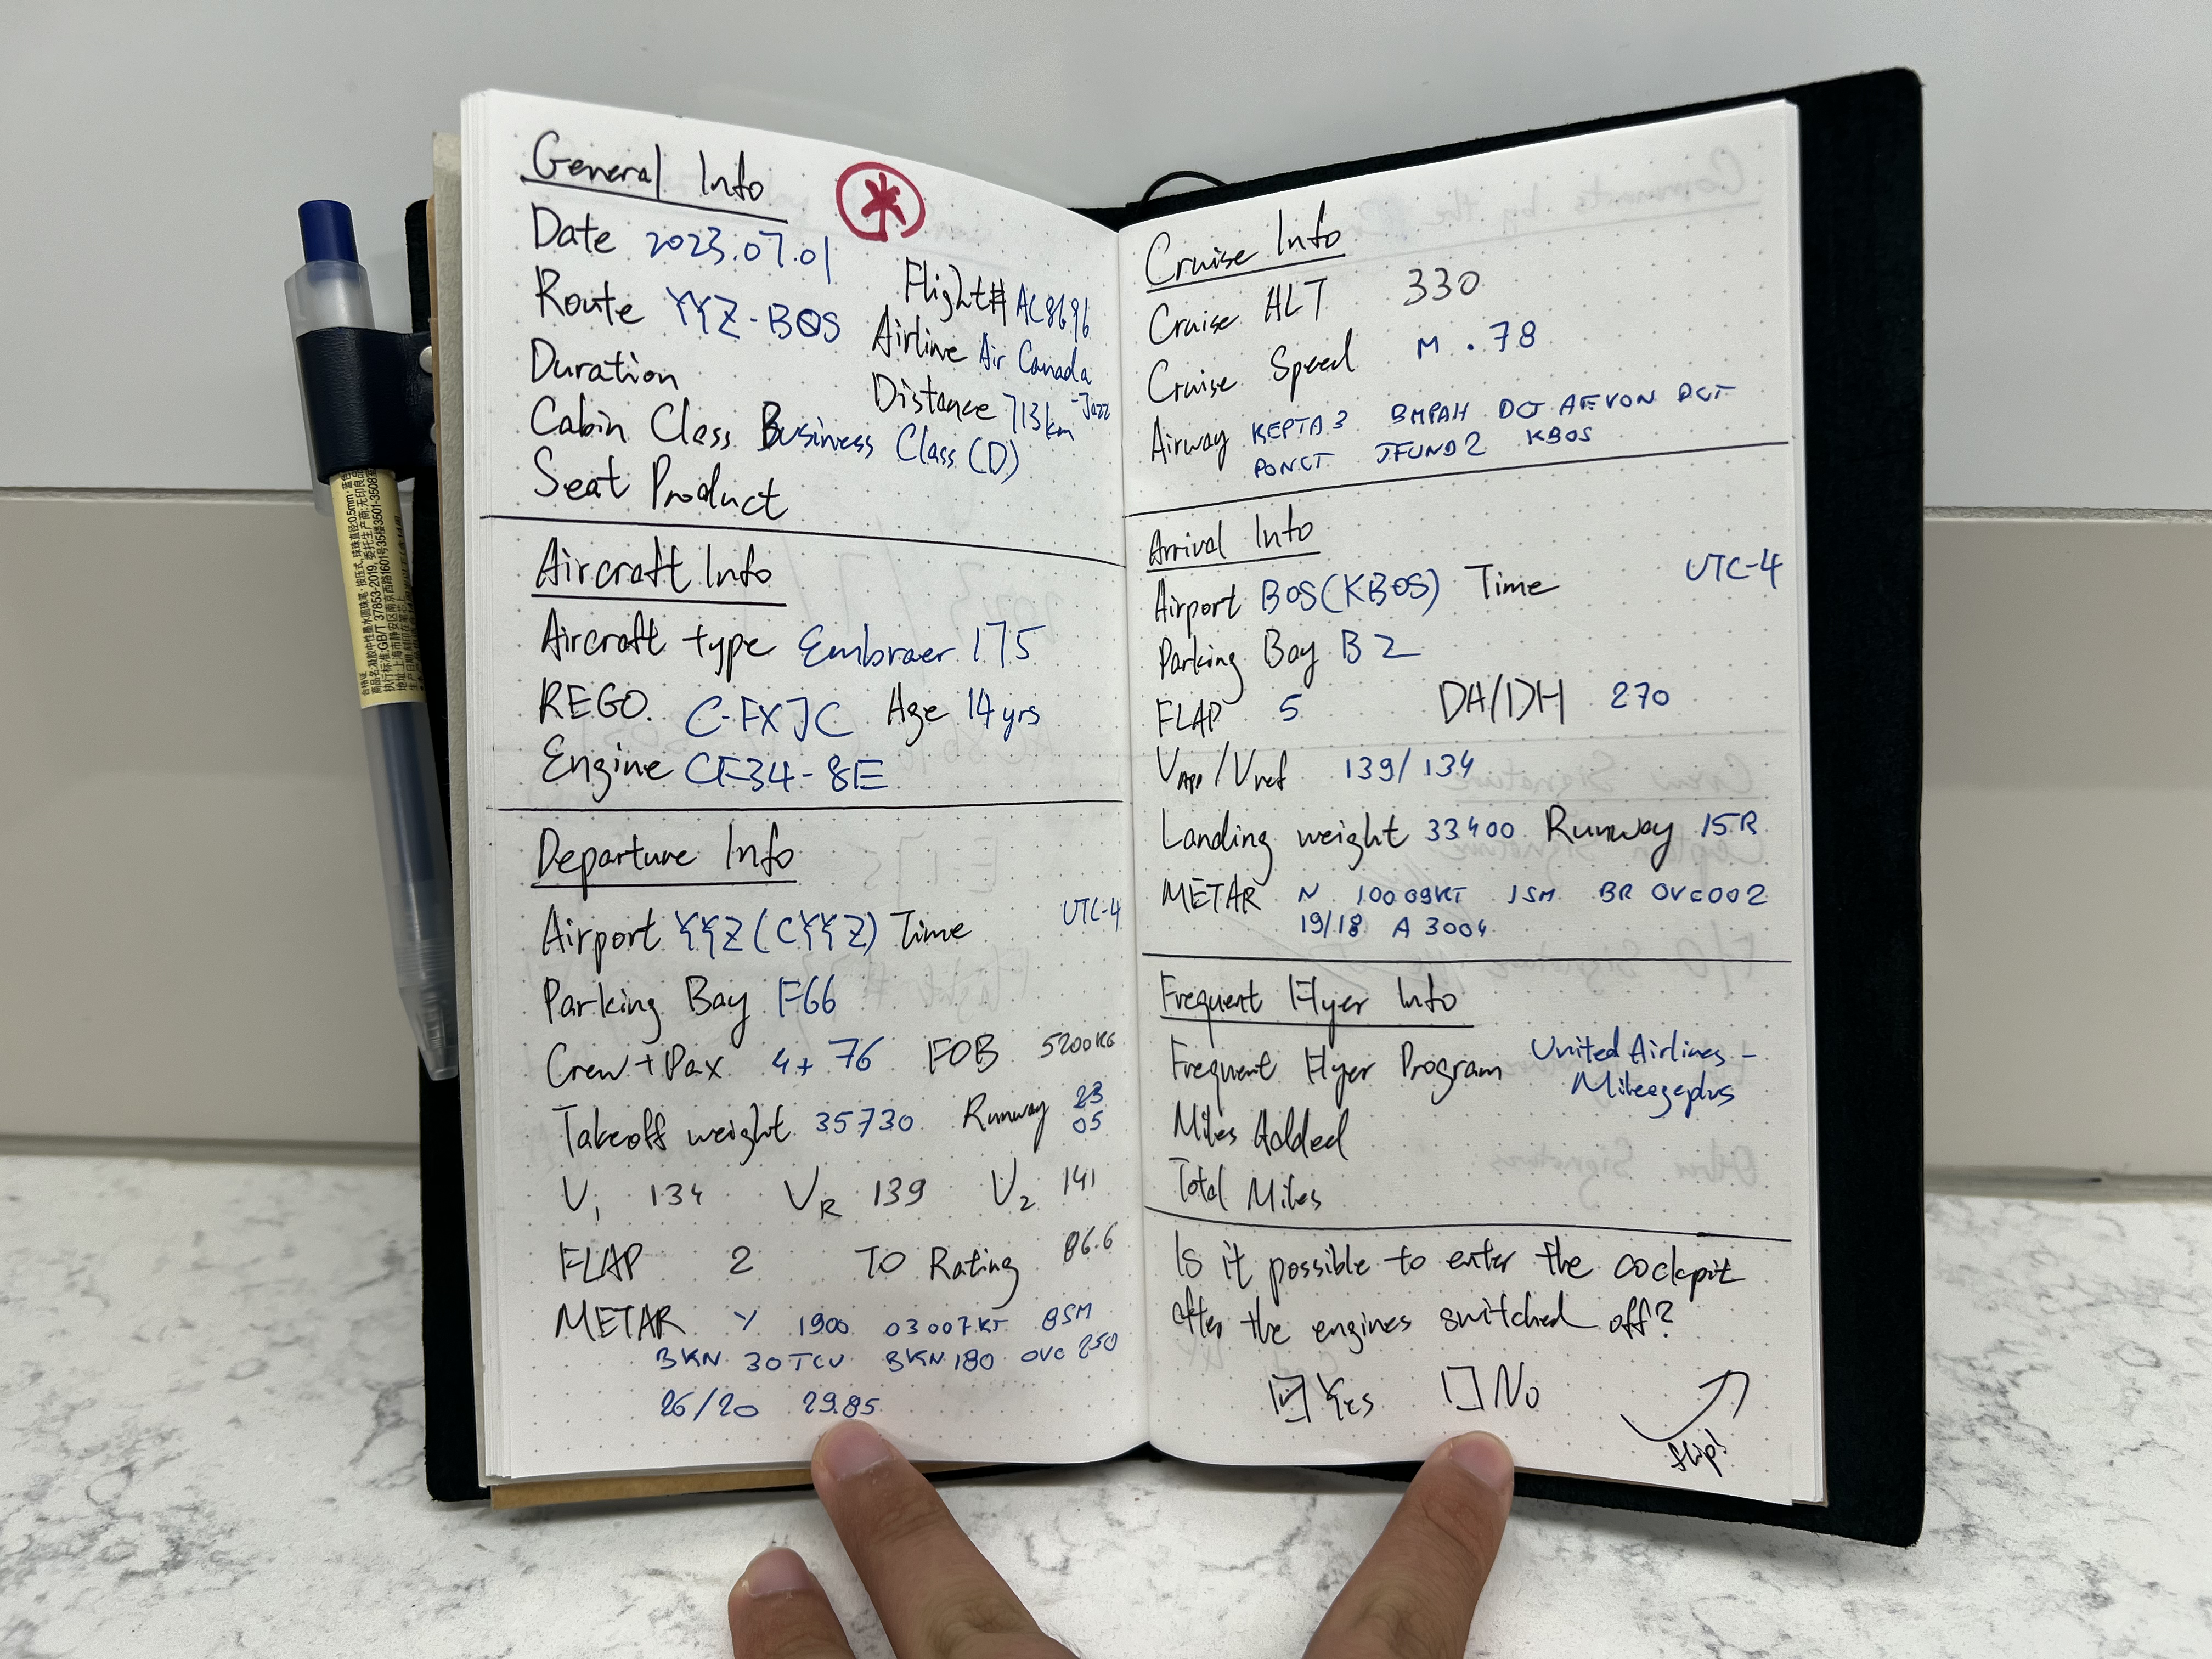 General Info
Date 2023.07.01
Flight# AC8696
Route YYZ-BOS
Airline Air Canada
-Jazz
Duration
Distance 713km
Cabin Class Business Class (D)
Seat Product
Aircraft Info
Aircraft type Embraer 175
REGO. C-FXJC Age 14 yrs
Engine CF34-8E
Departure Info
Airport YYZ (CYYZ) Time UTC-4
Parking Bay F66
Crew+Pax 4+76 FOB 5200KG
Takeoff weight 35730 Runway 23
05
V1 134 VR 139 V2 141
FLAP 2 TO Rating 86.6
METAR Y 1900 03007KT 8SM
BKN 30TCU BKN180 OVC 250
26/20 29.85
Cruise Info
Cruise ALT 330
Cruise Speed M .78
Airway KEPTA3 BMPAH DCT AEVON DCT
PONCT JFUND2 KBOS
Arrival Info
Airport BOS(KBOS) Time UTC-4
Parking Bay B2
FLAP 5 DA/DH 270
VAPP/Vref 139/134
Landing weight 33400 Runway 15R
METAR N 10009KT 1SM BR OVC002
19/18 A3004
Frequent Flyer Info
Frequent Flyer Program United Airlines -
Mileageplus
Miles Added
Total Miles
Is it possible to enter the cockpit
after the engines switched off?
Yes No
flip!